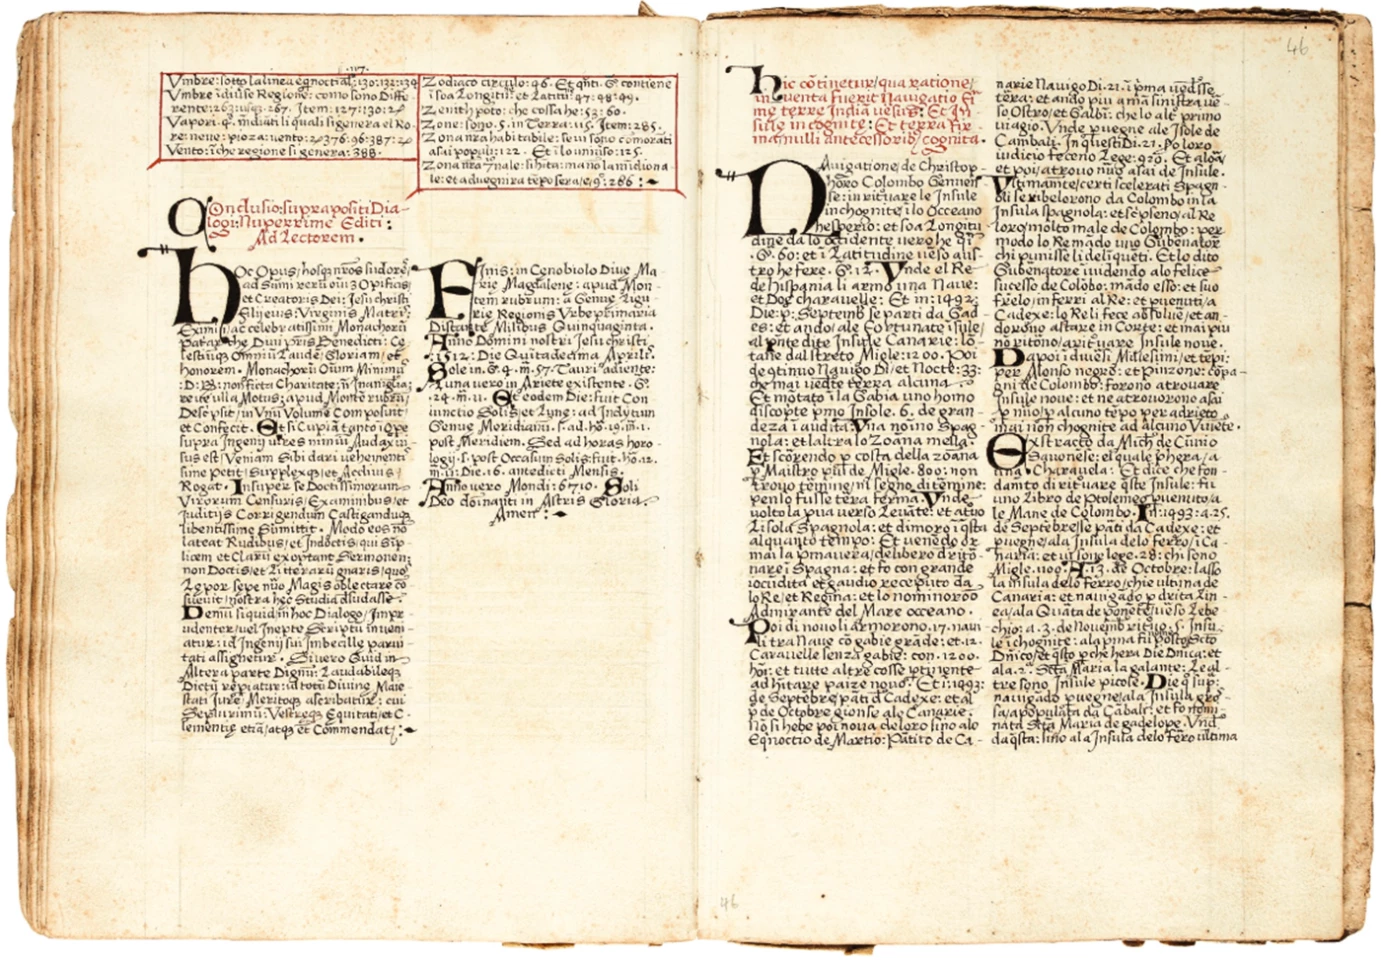 .117.
Vmbre: sotto la linea eqnoctial: 130: 132: 134
Vmbre i diuise Regione: como sono Diffe-
rente: 263: usq 267. Item: 127: 130:
Vapori.
re: neue: pioza: vento: 376: 96: 387:
Vento: i che regione si genera: 388.
Zodiaco circulo: 46. Et qnti. G. contiene
i soa Longitu: et Latitu: 47: 48: 49.
Zenith poto: che cossa he: 53: 60.
Zone: sono. 5. in Terra: 115. Item: 285.
Zona nra habitabile: se ui sono comorati
asai populi: 122. Et i lo uniuso: 125.
le: et aduegnira tepo sera: 286:
Onclusio: supra positi Dia-
logi: Nuperrime Editi:
Ad Lectorem.
Hoc Opus, hosq nros sudore,
ad Sumi reru oiu3 Opificis,
et Creatoris Dei: Jesu christi
Filij eius: Virginis Matri:
Eximij, ac celebratissimi Monachoru
Patarche Diui pris Benedicti: Ce-
lestiuq omniu Laude, Gloriam, et
honorem. Monachoru Oium Minimu
:D:B: non ficta Charitate: ni Inani glia:
re ue ulla Motus: apud Monte rubru,
Descpsit, in Vnu Volume Composuit
et Confecit. Et si Cupia tanto iope
supra Ingenij uires nimiu Audax ui-
sus est, Veniam Sibi dari uehementi
sime Petit, Supplexq, et Acclius,
Rogat. Insuper se Doctissimorum
Virorum Censuris, Examinibus, et
Juditijs Corrigendum Castigandum
libentissime Sumittit. Modo eos no
lateat Rudibus, et Indoctis, qui Sip-
licem et Claru exoptant Sermonem:
non Doctis, et Litteraru gnaris, quos
Lepor sepe nuo Magis oblectare co
sueuit, nostra hec Studia dsudasse.
Demu si quid in hoc Dialogo, Impr
udenter, vel Inepte Scriptu inueni-
atur: id Ingenij sui imbecille parui-
tati assignetur. Si uero Quid in
Altera parte Dignu: Laudabileq
Dictu repiatur: id totu Diuine Maie-
stati Jure, Meritoq ascribatur: cui
Se plurimu: Vestreq Equitati, et C-
lementie etia, atq et Commendat:
Finis: in Cenobiolo Diue Ma-
rie Magdalene: apud Mon-
tem rubrum: a Genue, Ligu-
rie Regionis Vrbe primaria
Distante Milibus Quinquaginta.
Anno Domini nostri Jesu christi
.1512: Die Quitadecima Aprilis.
Sole in. G. 4. m. 57. Tauri adiente:
Luna vero in Ariete existente. G.
.24. m. 11. Et eodem Die: fuit Con-
iunctio Solis, et Lune: ad Indytum
Genue Meridianu. s. ad. ho. 19. m. 1.
post Meridiem. Sed ad horas horo-
logij. s. post Occasum Solis: fuit. ho. 12.
m. 11: Die. 16. antedicti Mensis.
Anno vero Mondi: 6710. Soli
Deo dominati in Astris Gloria.
Amen:
46
Hic cotinetur, qua ratione,
inuenta fuerit Nauigatio Fi-
me terre India uersus: Et qn
sule incognite: Et terra fir-
ma, nulli antecessorio, cognita.
Nauigatione, de Christop-
horo Colombo Genuen-
se: in rituare le Insule
inchognite, i lo Occeano
hesperio: et soa Longitu
dine da lo occidente uero he
.G. 60: et i Latitudine ueso aus-
tro he fere. G. 12. Vnde el Re-
de Hispania li armo una Naue:
et Doe charauelle: Et in: 1492:
Die: p: Septemb se parti da Gad-
es: et ando, ale Fortunate isule,
al pnte dite Insule Canarie: lo-
tane dal streto Migle: 1200. Poi
de qtinuo Nauigo Di, et Nocte: 33:
che mai uedte terra alcuna.
Et motato i la Gabia uno homo
discopte pmo Insole. 6. de gran-
deza i audita: Vna no ino Spag-
nola: et laltra lo Zoana mesla.
Et scorendo p costa della zoana
p Maistro psu de Migle. 800: non
trouo termine, ni segno di termine:
penso fusse terra ferma. Vnde
uolto la pua uerso Leuate: et atuo
Lisola Spagnola: et dimoro i qsta
alquanto tempo: Et uenedo or
mai la pmauera, delibero d rito-
nare i Spagna: et fo con grande
iocudita et gaudio receputo da
lo Re, et Regina: et lo nominoroo
Admirante del Mare occeano.
Poi di nouo li armorono. 17. naui
li tra Naue co gabie grade: et. 12.
Carauelle senza gabie: con. 1200.
hoi: et tute altre cosse ptinente
ad hitare paize nouo. Et i: 1493:
de Septebre, pati d Cadexe: et al
p de Octobre gionse ale Canarie.
No si hebe poi noua de loro sino alo
Eqnoctio de Martio: Patito de Ca-
narie Nauigo Di. 21. i pma uedsse
tera: et ando piu a ma sinistra ue-
so Ostro, et Galbi: che lo alt primo
uiagio. Vnde puegne ale Isole de
Cambali. In questi Di. 21. Po loro
iudicio feceno Lege: 920. Et alqa
et poi, atrouo nuo asai de Insule.
Vltimamte, certi scelerati Spagn-
oli se ribelorono da Colombo in la
Insula spagnola: et scpseno, al Re
loro, molto male de Colombo: per
modo lo Remado uno Gubenator
chi punisse li deliqueti. Et lo dito
Gubenatore inuidendo alo felice
sucesso de Colobo: mado esso: et suo
frelo, in ferri al Re: et puenuti, a
Cadexe: lo Re li fece absolue, et an-
dorono astare in Corte: et mai piu
no ritono, a rituare Insule noue.
Da poi i diuesi Millesimi, et tepi:
per Alonso negro: et Pinzone: copa-
gni de Colombo: forono atrouare
Insule noue: et ne atrouorono asai
p nuo, p alcuno tepo per adrieto
mai non chognite ad alcuno Viuete.
Exstracto da Mich de Cunio
Sauonese: el quale phgera, a
una Charauela: Et dice che fon-
damto di rituare qste Insule: fu
uno Libro de Ptolemeo, puenuto, a
le Mane de Colombo. In: 1493: a. 25.
de Septebre, le pati da Cadexe: et
puegne, ala Insula delo ferro, i Ca-
naria: et ui sono lege. 28: chi sono
Migle. 109. A 13. de Octobre: lasso
la insula delo Ferro, chie ultima de
Canaria: et nauigado p drita Lin-
ea, ala Quata de ponete, ueso Lebe-
chio: a. 3. de Nouembr rituo. 5. Insu-
le ichognite: ala pma fu posto nome Scto
Dnico, et qsto pche hera Die Dnica: et
ala. 2. Scta Maria la galante: Le al-
tre sono Insule picole. Die q sup:
nauigado puegne, ala Insula gro-
sa, apopulata da Cabali: et fo nomi-
nata Scta Maria de gadelope. Vnd
da qsta: sino ala Insula delo Fero ultima
46